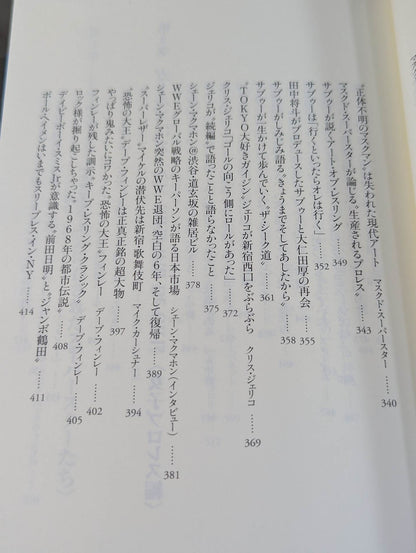 "正体不明のマスクマン"は失われた現代アート　マスクド・スーパースター……340
マスクド・スーパースターが論じる"生産されるプロレス"……343
サブゥーが説く"アート・オブ・レスリング"……349
サブゥーは「行くといったらオレは行く」……352
田中将斗がプロデュースしたサブゥーと大仁田厚の再会……355
サブゥーがしみじみ語る"きょうまでそしてあしたから"……358
サブゥーが"生かけて歩んでいく"ザ・シーク道"……361
"TOKYO大好きガイジン"ジェリコが新宿西口をぶらぶら　クリス・ジェリコ……369
クリス・ジェリコ「ゴールの向こう側にロールがあった」……372
ジェリコが"続編"で語ったことと語らなかったこと……375
シェーン・マクマホン@渋谷・道玄坂の雑居ビル……378
WWEグローバル戦略のキーパーソンが語る日本市場　シェーン・マクマホン（インタビュー）……381
シェーン・マクマホン突然のWWE退団、空白の6年、そして復帰……389
"スーパーレザー"マイケルの潜伏先は新宿・歌舞伎町　マイク・カーシュナー……394
"恐怖の大王"デーブ・フィンレーは正真正銘の超大物……397
やっぱり鬼みたいにコワかった"恐怖の大王"フィンレー　デーブ・フィンレー……402
フィンレーが残した訓示"キープ・レスリング・クラシック"　デーブ・フィンレー……405
ロック様が掘り起こしちゃった"1968年の都市伝説"……408
デイビーボーイ・スミスJr.が意識する"前田日明"と"ジャンボ鶴田"……411
ポール・ヘイメンはいまでもスリープレス・イン・NY……414